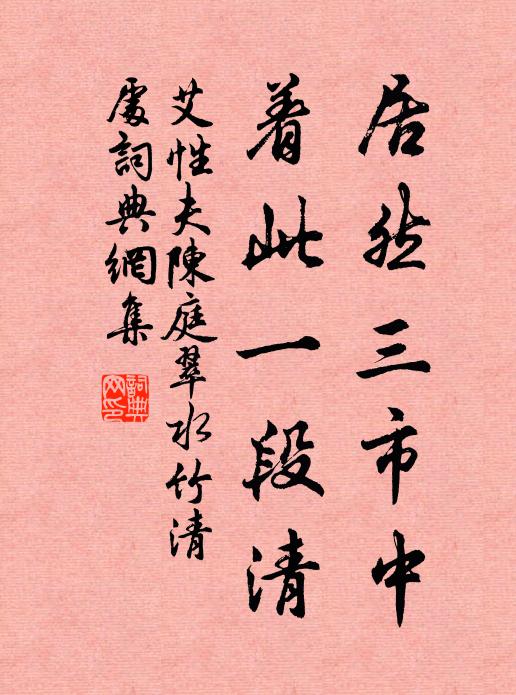 居然三市中
着此一段清
艾性夫陳庭翠水竹清
處詞典網集
詞典网印